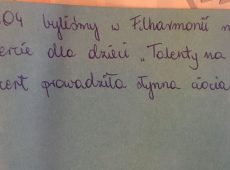 04 byliśmy w Filharmonii n
ercie dla dzieci „Talenty na
cert prowadziła słynna ciocia